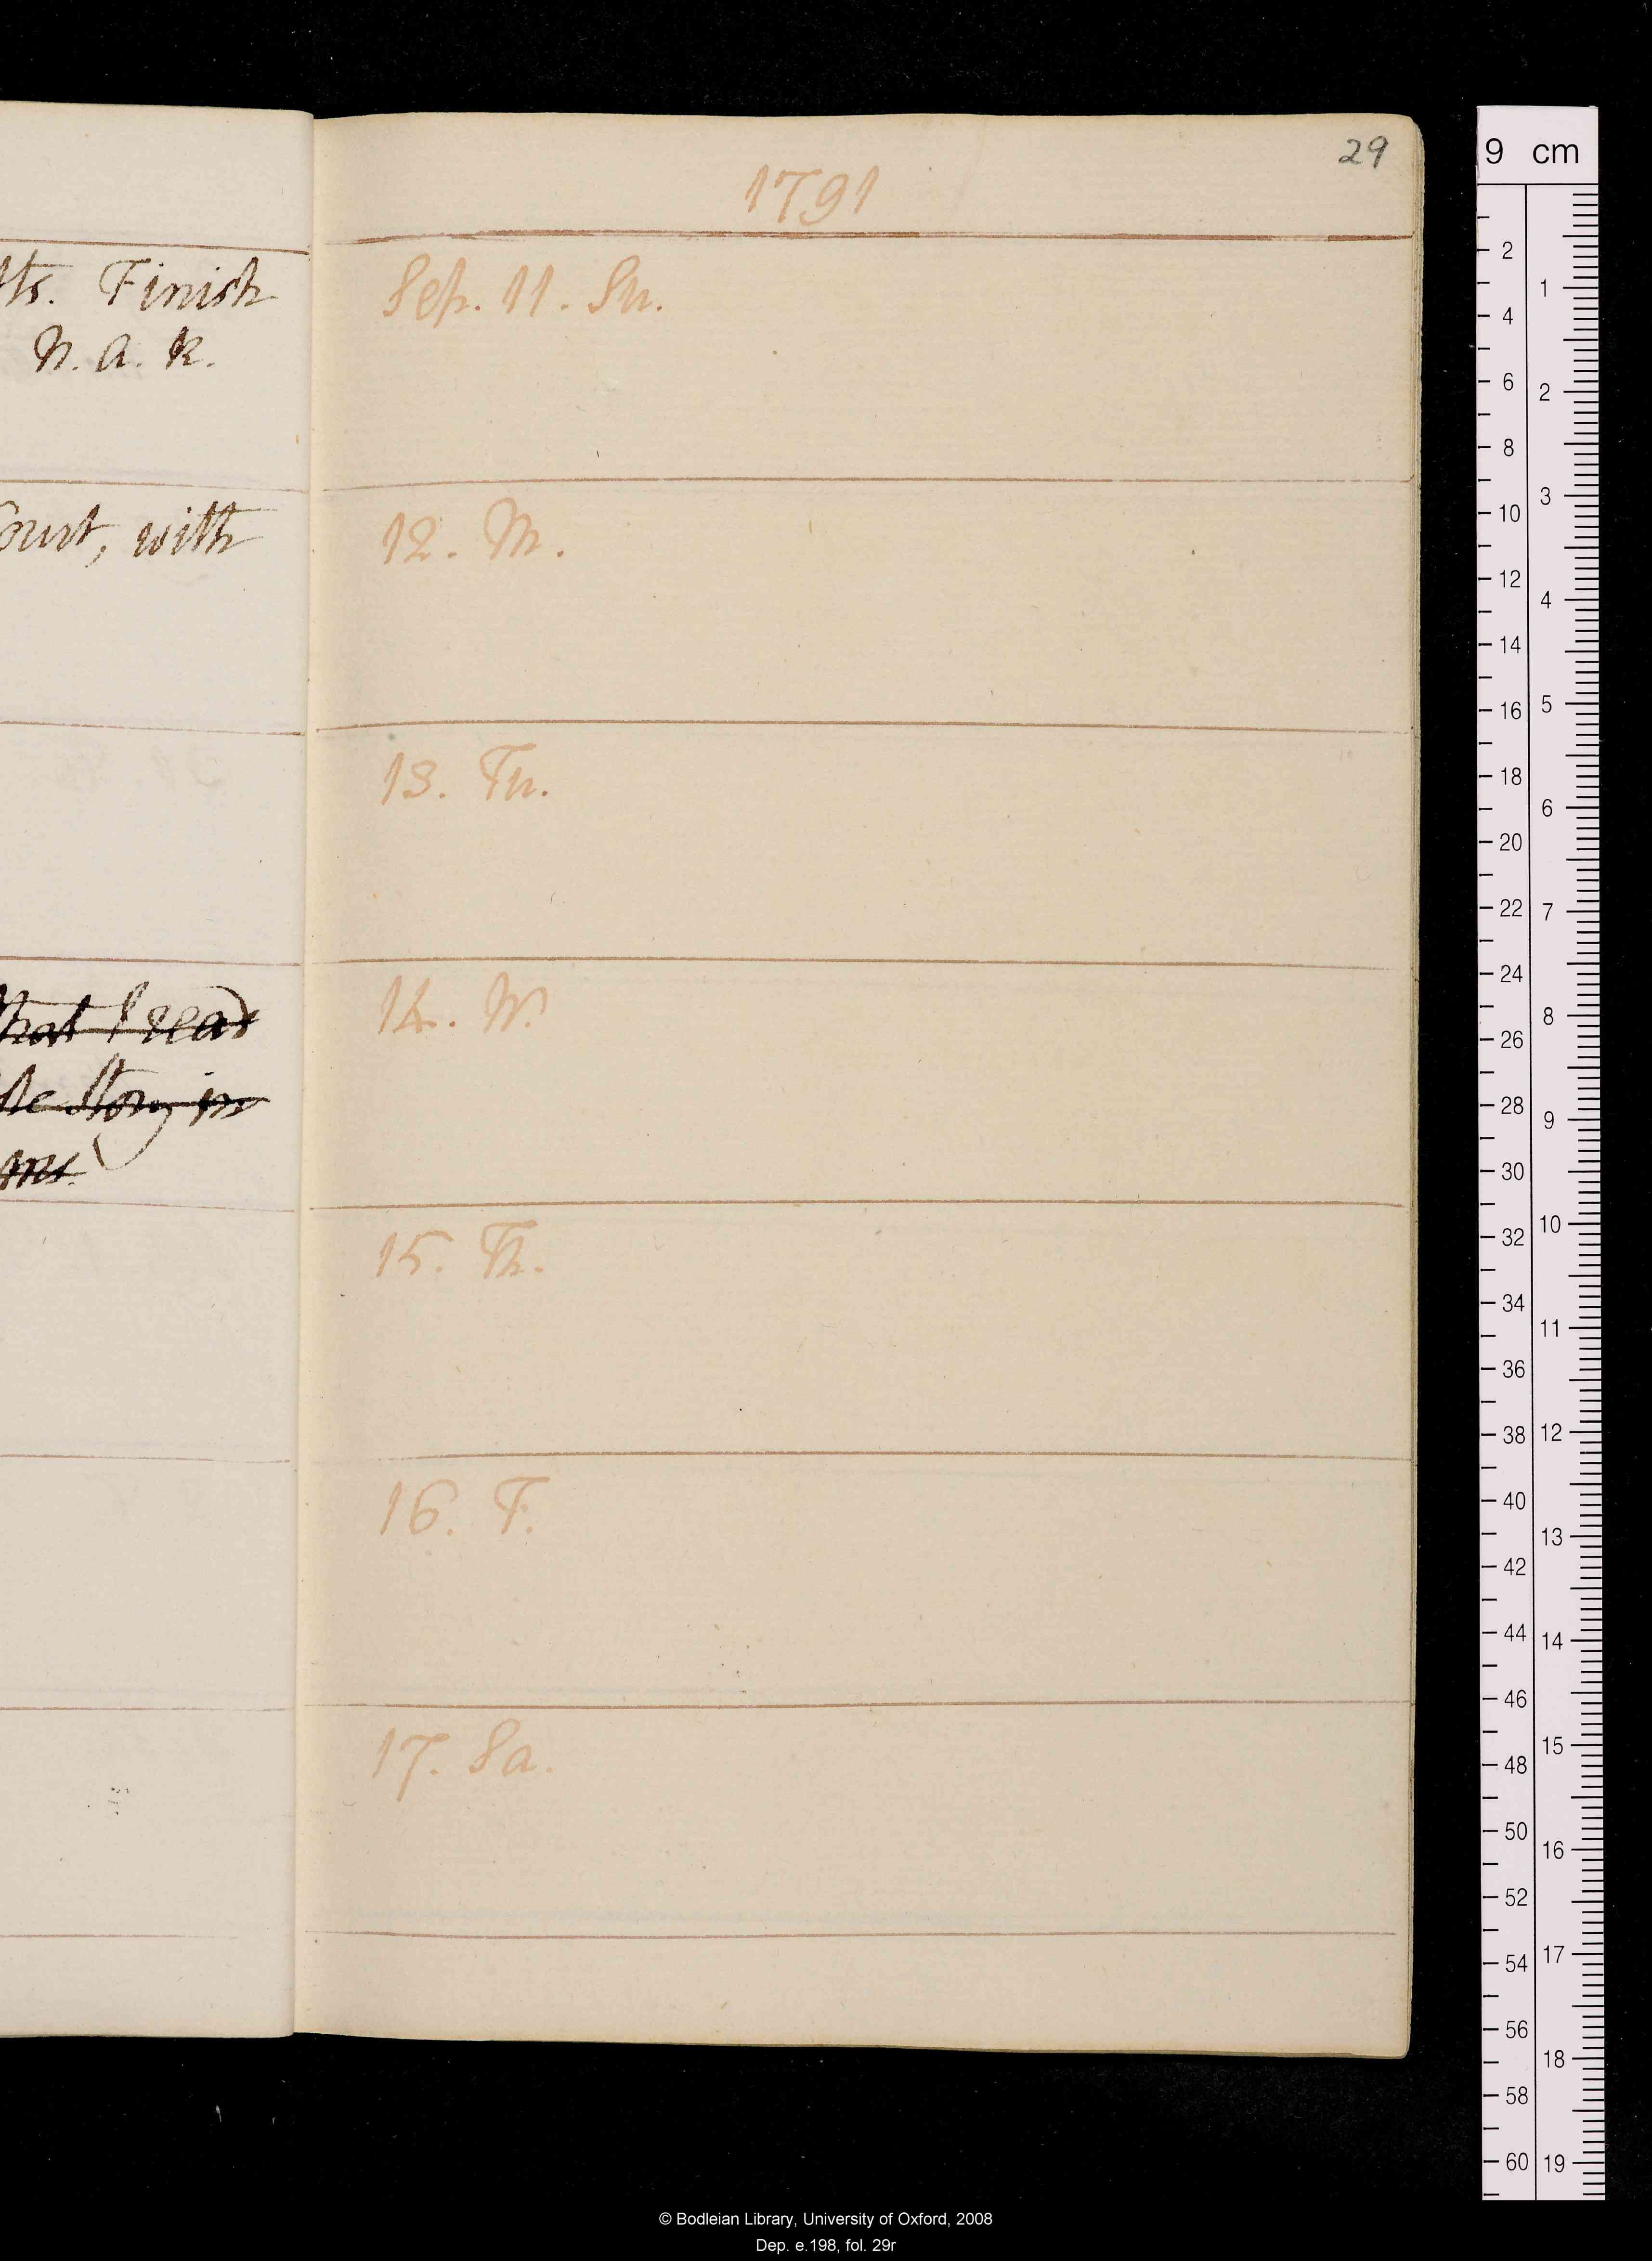 29
1791
Sep. 11. Su.
12. M.
13. Tu.
14. W.
15. Th.
16. F.
17. Sa.
Finish
N. a. R.
with
that I read
story in
9 cm
2
4
6
8
10
12
14
16
18
20
22
24
26
28
30
32
34
36
38
40
42
44
46
48
50
52
54
56
58
60
1
2
3
4
5
6
7
8
9
10
11
12
13
14
15
16
17
18
19
© Bodleian Library, University of Oxford, 2008
Dep. e.198, fol. 29r